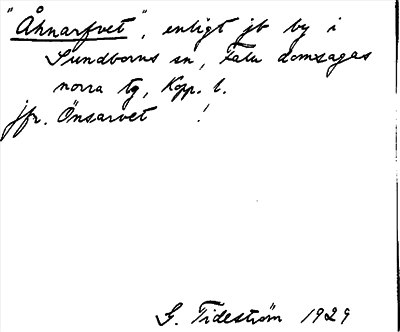 "Åhnarfvet", enligt jb by i
Sundborns sn, Falu domsagas
norra tg, Kopp. l.
jfr. Önsarvet !
G. Tideström 1929